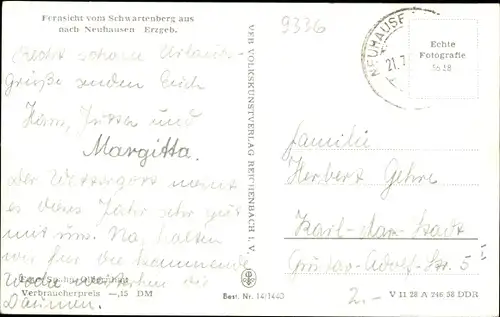 Fernsicht vom Schwartenberg aus
nach Neuhausen Erzgeb.
9336
NEUHAUSE
21.7
Echte
Fotografie
Recht schöne Urlaubs-
grüße senden Euch
Hans, Jutta und
Margitta.
Der Wettergott meint
es dieses Jahr sehr gut
mit uns. Na, halten
wir für die kommende
Woche die
Daumen.
Verbraucherpreis —,15 DM
VEB VOLKSKUNSTVERLAG REICHENBACH I. V.
Best. Nr. 14/1440
Familie
Herbert Gehre
Karl-Marx-Stadt
Gustav-Adolf-Str. 5
2.-
V 11 28 A 246 58 DDR